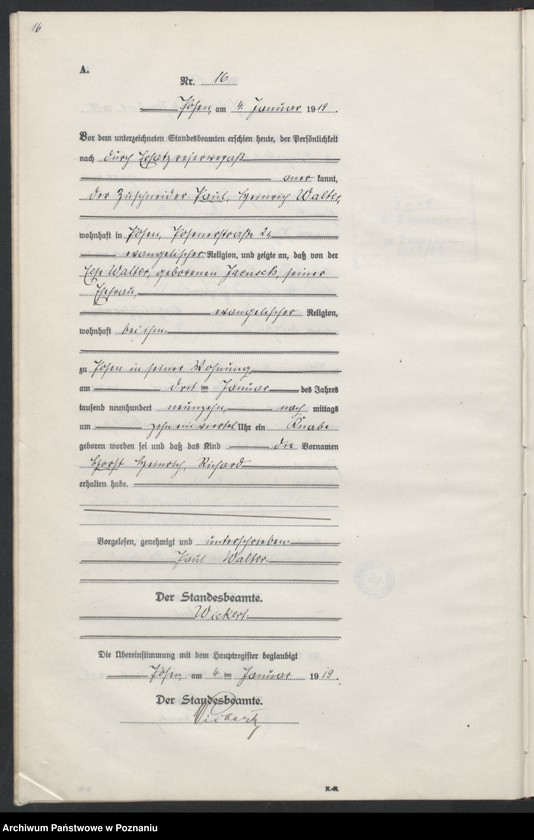 16
A.
Nr. 16
Posen, am 4. Januar 1919.
Vor dem unterzeichneten Standesbeamten erschien heute, der Persönlichkeit
nach durch Ersatzreservepaß
aner kannt,
der Zuschneider Paul, Heinrich Walter,
wohnhaft in Posen, Posenerstraße
evangelischer Religion, und zeigte an, daß von der
Walter, geborenen seiner
Ehefrau,
evangelischer Religion,
wohnhaft bei ihm
zu Posen in seiner Wohnung
am drei ten Januar des Jahres
tausend neunhundert neunzehn, nach mittags
um zehn ein viertel Uhr ein Knabe
geboren worden sei und daß das Kind die Vornamen
Horst Heinrich, Richard
erhalten habe.
Vorgelesen, genehmigt und unterschrieben
Paul Walter.
Der Standesbeamte.
Wickert.
Die Übereinstimmung mit dem Hauptregister beglaubigt
Posen, am 4. ten Januar 1919.
Der Standesbeamte.
Archiwum Państwowe w Poznaniu